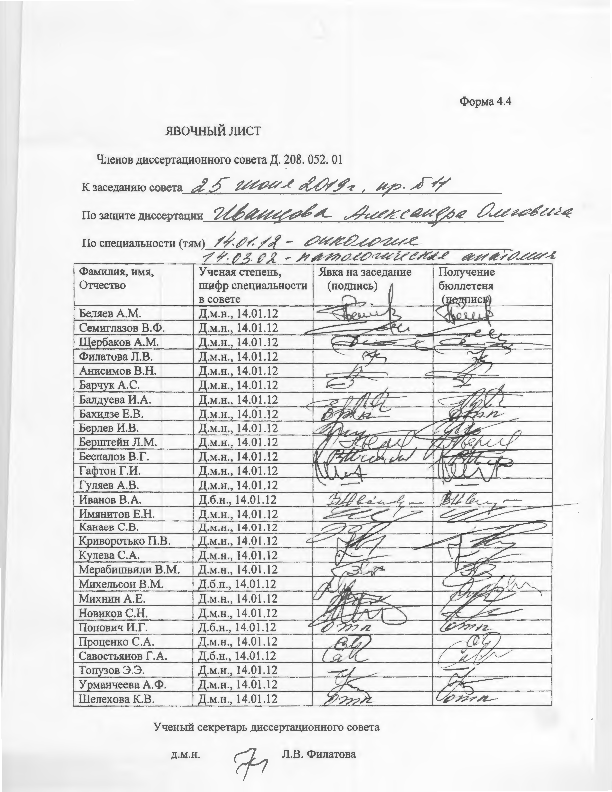 Форма 4.4
ЯВОЧНЫЙ ЛИСТ
Членов диссертационного совета Д. 208. 052. 01
К заседанию совета 25 июня 2019г, пр. №11
По защите диссертации Иванцова Александра Олеговича
По специальности (тям) 14.01.12 - онкология
14.03.02 - патологическая анатомия
Фамилия, имя, Отчество | Ученая степень, шифр специальности в совете | Явка на заседание (подпись) | Получение бюллетеня (подпись)
Беляев А.М. Д.м.н., 14.01.12
Семиглазов В.Ф. Д.м.н., 14.01.12
Щербаков А.М. Д.м.н., 14.01.12
Филатова Л.В. Д.м.н., 14.01.12
Анисимов В.Н. Д.м.н., 14.01.12
Барчук А.С. Д.м.н., 14.01.12
Балдуева И.А. Д.м.н., 14.01.12
Бахидзе Е.В. Д.м.н., 14.01.12 отп отп
Берлев И.В. Д.м.н., 14.01.12
Берштейн Л.М. Д.м.н., 14.01.12
Беспалов В.Г. Д.м.н., 14.01.12
Гафтон Г.И. Д.м.н., 14.01.12
Гуляев А.В. Д.м.н., 14.01.12 — —
Иванов В.А. Д.б.н., 14.01.12
Имянитов Е.Н. Д.м.н., 14.01.12
Канаев С.В. Д.м.н., 14.01.12
Криворотько П.В. Д.м.н., 14.01.12
Кулева С.А. Д.м.н., 14.01.12
Мерабишвили В.М. Д.м.н., 14.01.12
Михельсон В.М. Д.б.н., 14.01.12
Михнин А.Е. Д.м.н., 14.01.12
Новиков С.Н. Д.м.н., 14.01.12
Попович И.Г. Д.б.н., 14.01.12 отп отп
Проценко С.А. Д.м.н., 14.01.12
Савостьянов Г.А. Д.б.н., 14.01.12
Топузов Э.Э. Д.м.н., 14.01.12
Урманчеева А.Ф. Д.м.н., 14.01.12
Шелехова К.В. Д.м.н., 14.01.12 отп отп
Ученый секретарь диссертационного совета
д.м.н. Л.В. Филатова